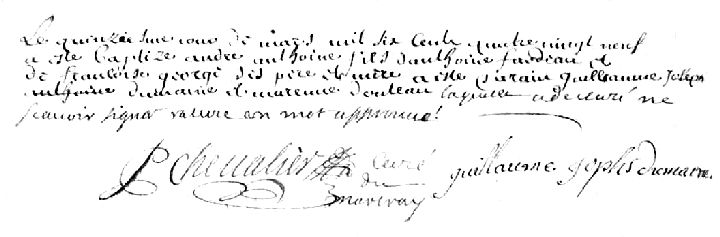 Le quinziesme jour de mars mil six cents quatre vingt neuf
a este baptize andre anthoine fils d'anthoine fardeau et
de francoise george ses pere et mere a este parain guillaume Joseph
anthoine dumaine et mareinne laquelle a declaré ne
scavoir signer rature un mot approuué
P chevalier curé
du
martray
guillaume